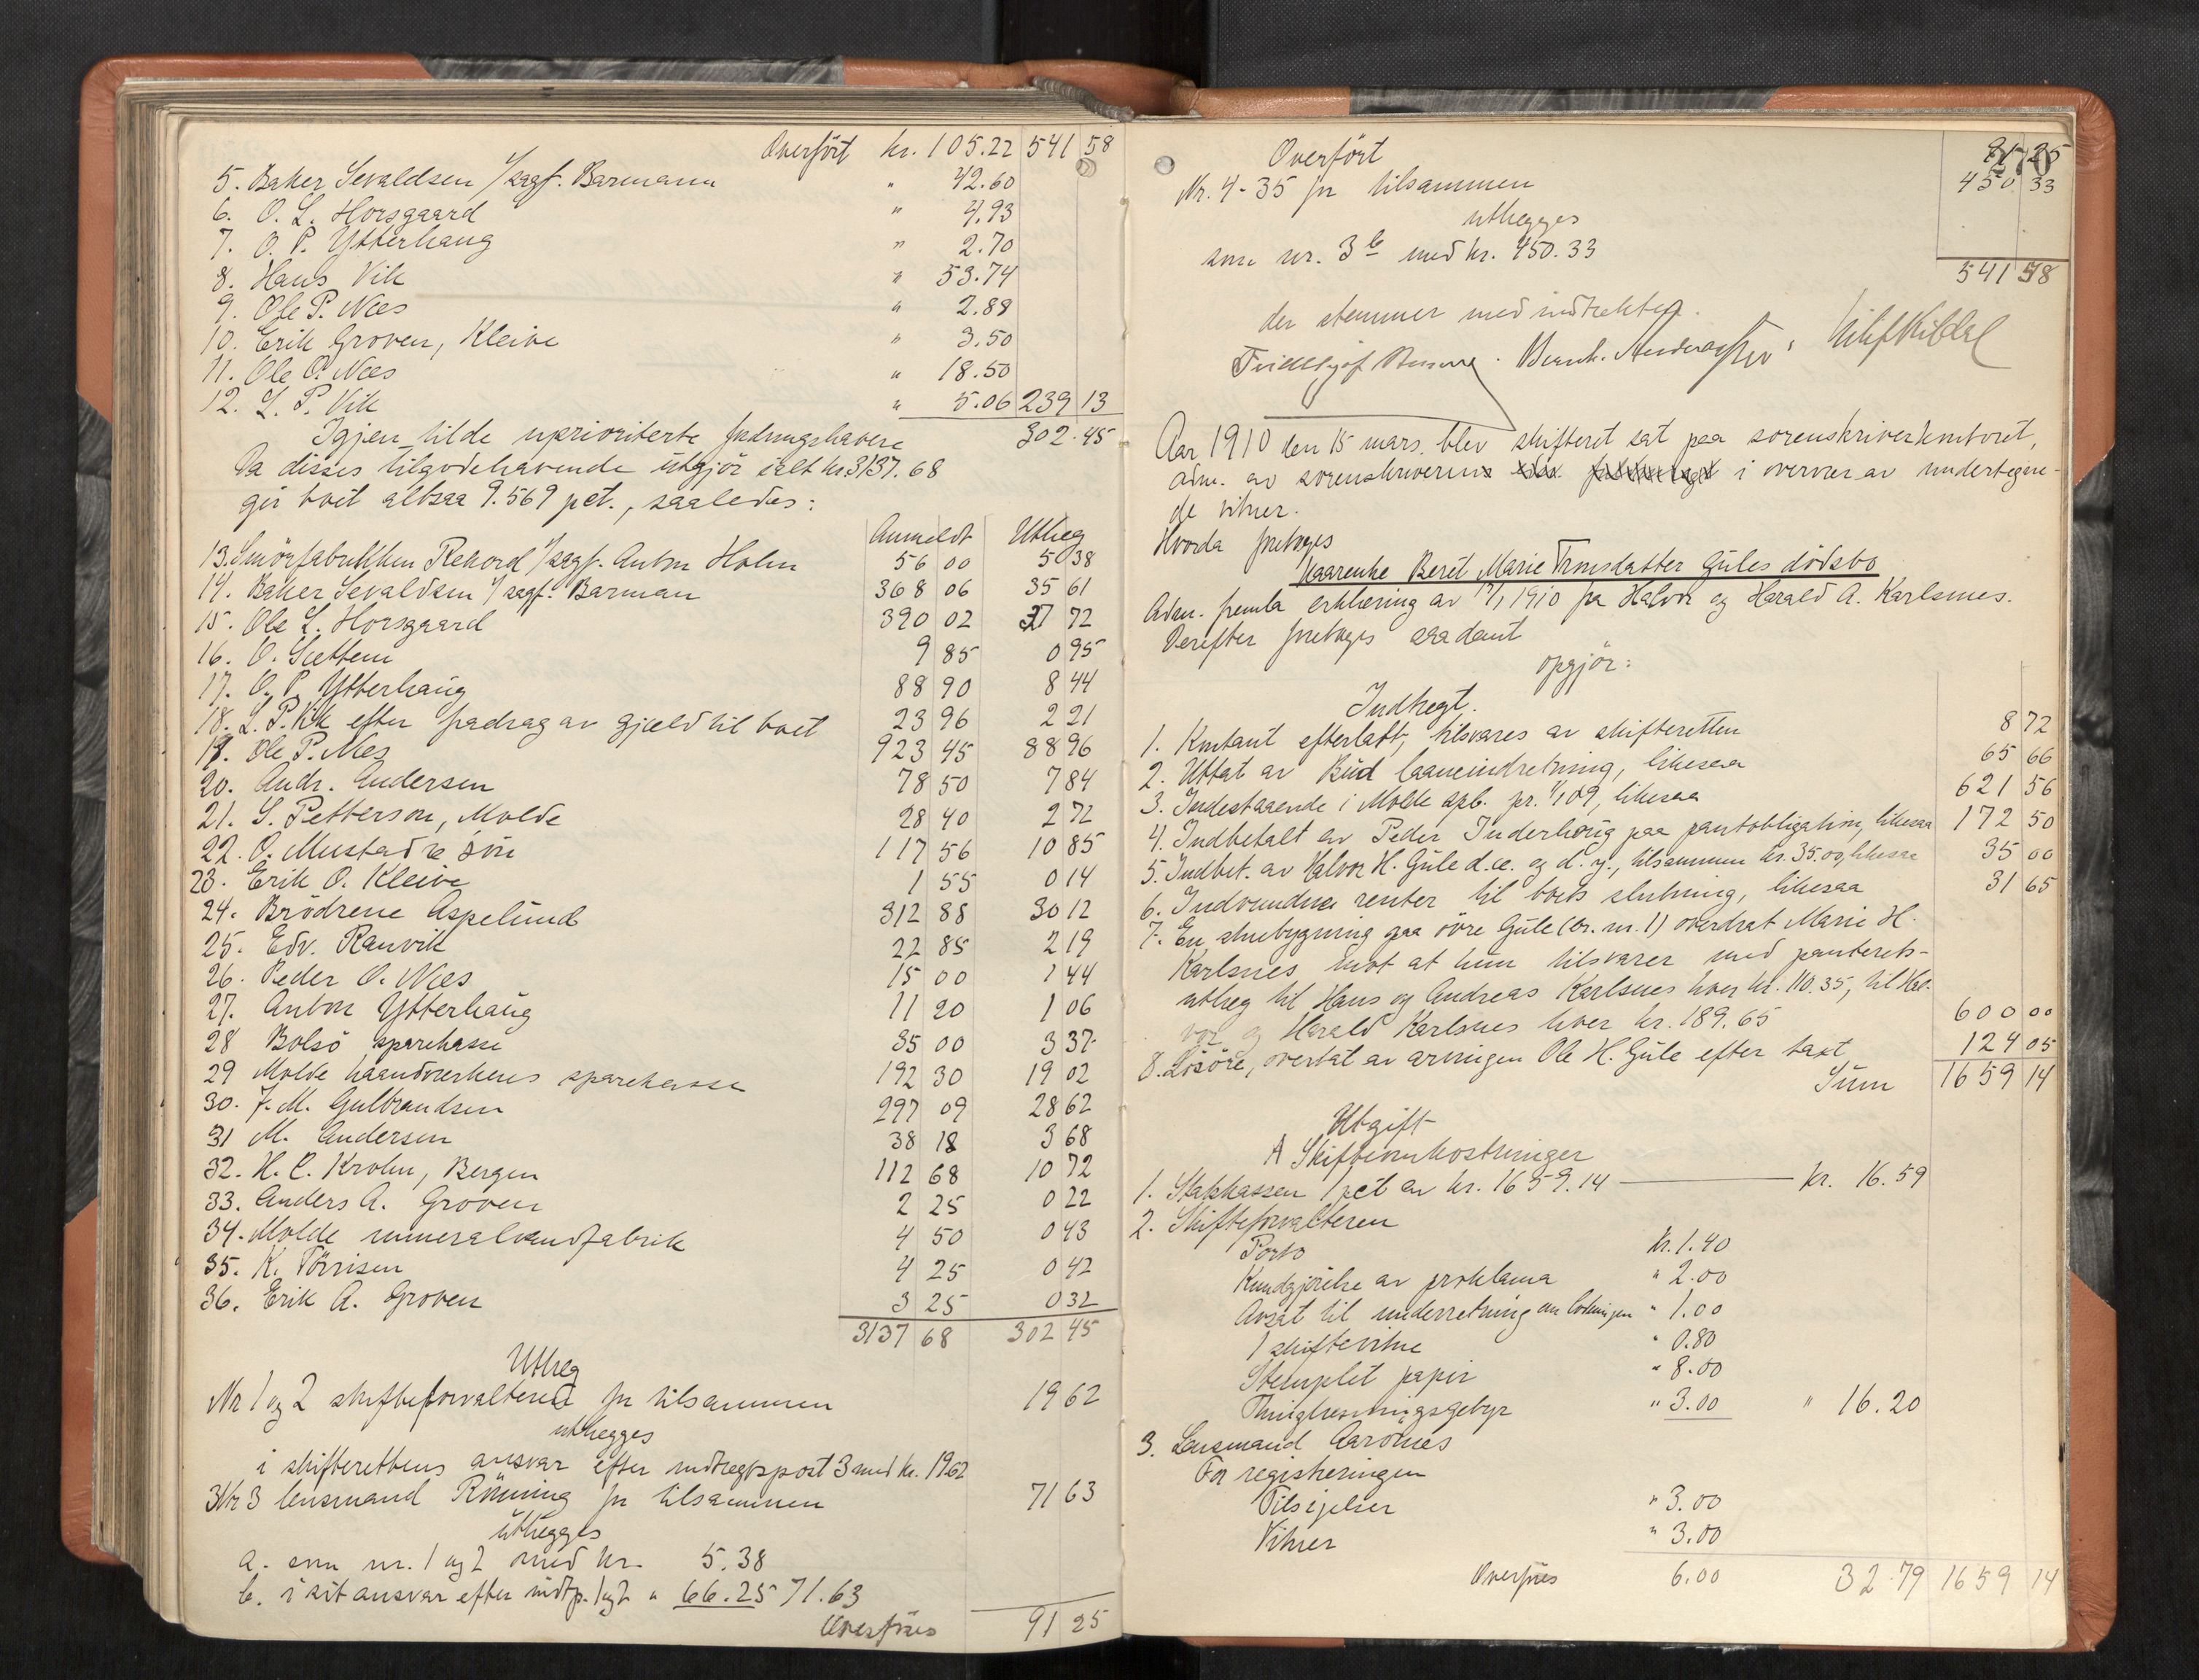 Overført kr. 105.22 541 58
5. Baker Sevaldsen v/sagf. Barmann " 42.60
6. O. L. Horsgaard " 4.93
7. O. P. Ytterhaug " 2.70
8. Hans Vik " 53.74
9. Ole P. Næs " 2.88
10. Erik Groven, Kleive " 3.50
11. Ole O. Næs " 18.50
12. L. P. Vik " 5.06 239 13
Igjen til de uprioriterte fordringshavere 302.45
Da disses tilgodehavende utgjör ialt kr. 3137.68
gir boet altsaa 9.569 pct., saaledes:
Anmeldt Utlæg
13. Smörfabrikken Rekord v/sagf. Anton Holm 56 00 5 38
14. Baker Sevaldsen v/sagf. Barman 368 06 35 61
15. Ole L. Horsgaard 390 02 37 72
16. O. Sættem 9 85 0 95
17. O. P. Ytterhaug 88 90 8 44
18. L. P. Vik efter fradrag av gjæld til boet 23 96 2 21
19. Ole P. Næs 923 45 88 96
20. Andr. Andersen 78 50 7 84
21. S. Petterson, Molde 28 40 2 72
22. O. Mustad & sön 117 56 10 85
23. Erik O. Kleive 1 55 0 14
24. Brödrene Aspelund 312 88 30 12
25. Edv. Ranvik 22 85 2 19
26. Peder O. Næs 15 00 1 44
27. Anton Ytterhaug 11 20 1 06
28 Bolsö sparekasse 35 00 3 37
29 Molde haandverkeres sparekasse 192 30 19 02
30. J. M. Gulbrandsen 297 09 28 62
31 M. Andersen 38 18 3 68
32. H. C. Krohn, Bergen 112 68 10 72
33. Anders A. Groven 2 25 0 22
34. Molde mineralvandfabrik 4 50 0 43
35. K. Törrisen 4 25 0 42
36. Erik A. Groven 3 25 0 32
3137 68 302 45
Utlæg
Nr 1 og 2 skifteforvalteren for tilsammen 19 62
utlægges
i skifterettens ansvar efter indtægtspost 3 med kr. 19.62
Nr 3 lensmand Rönning for tilsammen 71 63
utlægges
a. som nr. 1 og 2 med kr. 5.38
b. i sit ansvar efter indtp. 1 og 2 " 66.25 71.63
Overføres 91 25
Overført 91 25
Nr. 4-35 for tilsammen 450 33
utlægges
som nr. 3 b med kr. 450.33
541 58
der stemmer med indtækten.
Aar 1910 den 15 mars. blev skifteret sat paa sorenskriverkontoret,
adm. av sorenskriveren i overvær av undertegne-
de vitner.
Hvorda foretoges
Kaarenke Beret Marie Tronsdatter Gules dödsbo
Adm. fremla erklæring av 17/1 1910 fra Halvor og Harald A. Karlsnes.
Derefter foretoges saadant
opgjör:
Indtægt.
1. Kontant efterlatt, tilsvares av skifteretten 8 72
2. Uttat av Bud laaneindretning, likesaa 65 66
3. Indestaaende i Molde spb. pr. 1/1 09, likesaa 621 56
4. Indbetalt av Peder Inderhaug paa pantobligation, likesaa 172 50
5. Indbet. av Halvor H. Gule d.æ. og d. y., tilsammen kr. 35.00, likesaa 35 00
6. Indvundne renter til boets slutning, likesaa 31 65
7. En stuebygning paa övre Gule (br. nr. 1) overdrat Marie H.
Karlsnes mot at hun tilsvarer med panterets-
utlæg til Hans og Andreas Karlsnes hver kr. 110.35, til Hal-
vor og Harald Karlsnes hver kr. 189.65 600 00
8. Lösöre, overtat av arvingen Ole H. Gule efter taxt 124 05
Sum 1659 14
Utgift
A Skifteomkostninger
1. Statskassen 1 pct av kr. 1659.14 kr. 16.59
2. Skifteforvalteren
Porto kr. 1.40
Kundgjörelse av proklama " 2.00
Avsat til underretning om lodningen " 1.00
1 skiftevitne " 0.80
Stemplet papir " 8.00
Thinglæsningsgebyr " 3.00 " 16.20
3. Lensmand Aarönes
For registreringen
Tilsigelser " 3.00
Vitner " 3.00
Overføres 6.00 32.79 1659 14